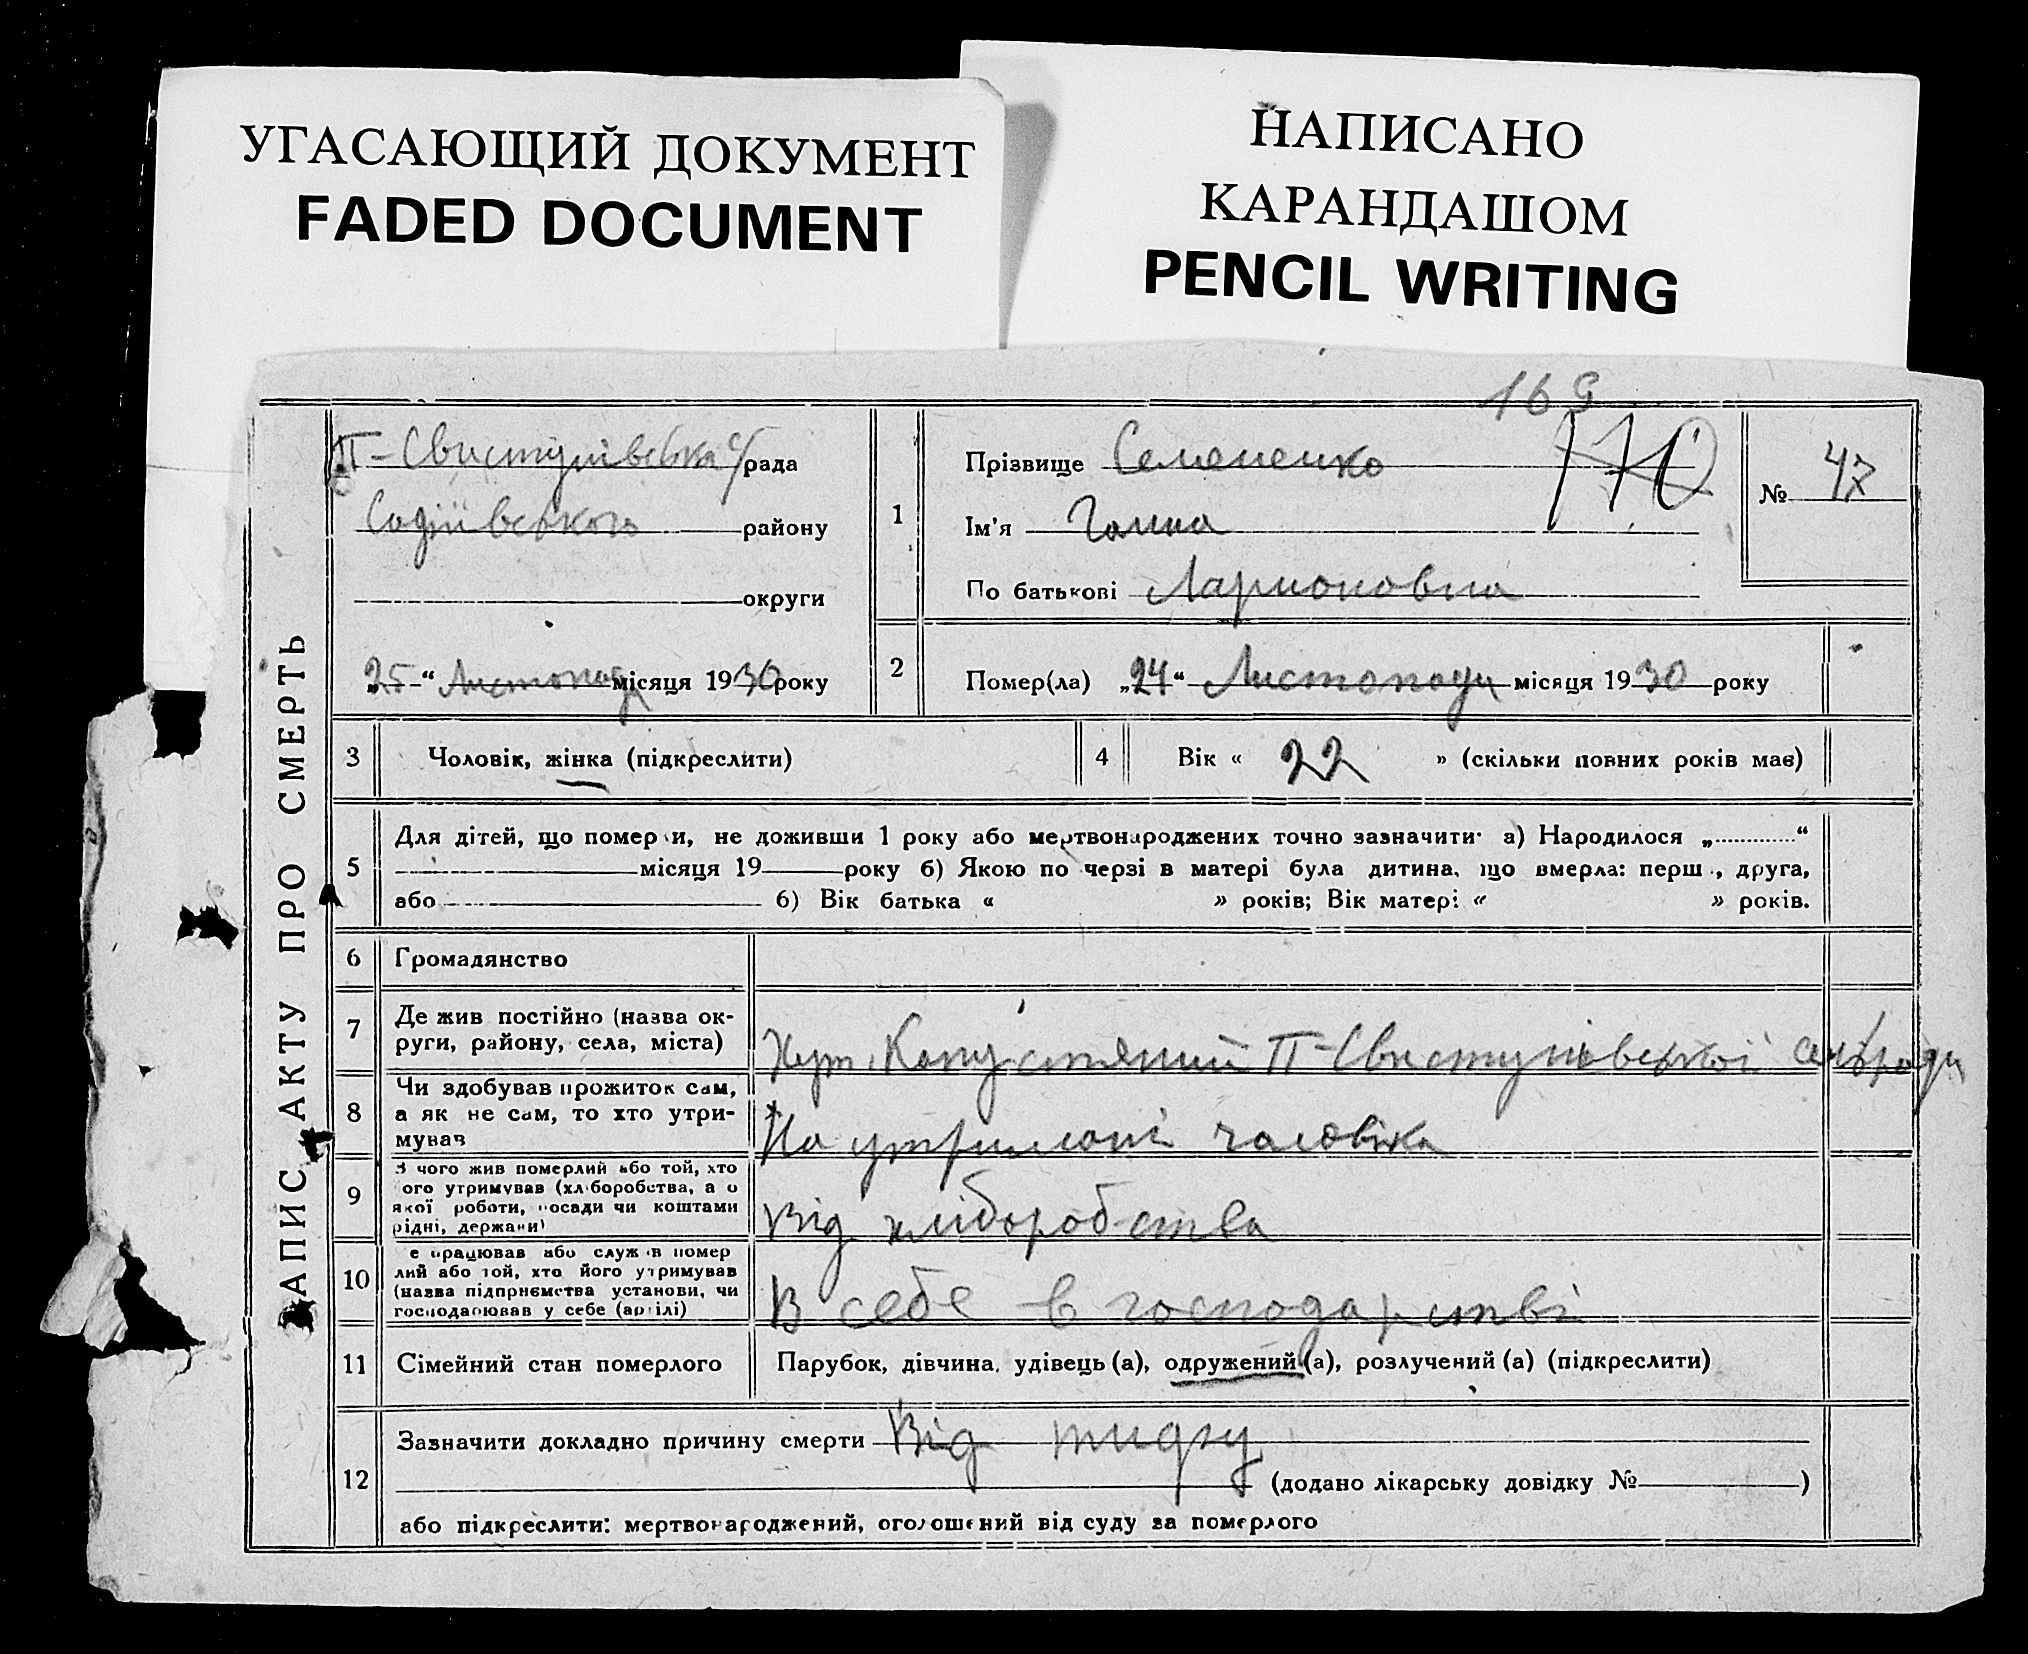 УГАСАЮЩИЙ ДОКУМЕНТ
FADED DOCUMENT
НАПИСАНО
КАРАНДАШОМ
PENCIL WRITING
169
170
АПИС АКТУ ПРО СМЕРТЬ
П-Свистунівська с/рада
Софіївського району
округи
„25“ Листопада місяця 1930 року
1
Прізвище Семененко
Ім'я Ганна
По батькові Ларионовна
№ 47
2
Помер(ла) „24“ Листопада місяця 1930 року
3 Чоловік, жінка (підкреслити)
4 Вік « 22 » (скільки повних років має)
5 Для дітей, що помер и, не доживши 1 року або мертвонароджених точно зазначити· а) Народилося „............“
місяця 19 року б) Якою по черзі в матері була дитина, що вмерла: перш , друга,
або 6) Вік батька « » років; Вік матері « » років.
6 Громадянство
7 Де жив постійно (назва ок-
руги, району, села, міста)
Хут. Капустяний П-Свистунівської сельради
8 Чи здобував прожиток сам,
а як не сам, то хто утри-
мував
На утримані чаловіка
9 З чого жив померлий або той, хто
ого утримував (хл боробства, а о
якої роботи, посади чи коштами
рідні, держави)
Від хліборобства
10 е працював або служ в помер
лий або той, хто його утримував
(назва підприємства установи, чи
господарював у себе (артілі)
В себе в господарстві
11 Сімейний стан померлого
Парубок, дівчина, удівець (а), одружений (а), розлучений (а) (підкреслити)
12 Зазначити докладно причину смерти Від тифу
(додано лікарську довідку № )
або підкреслити: мертвонароджений, оголошений від суду за померлого